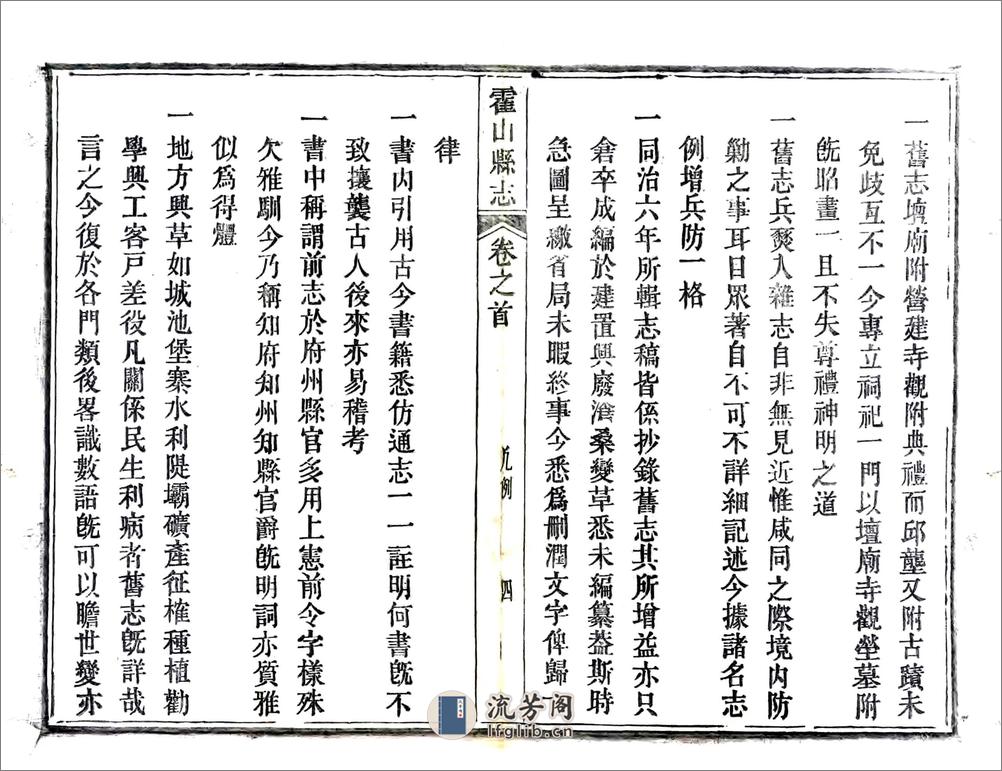 一舊志壇廟附營建寺觀附典禮而邱壟又附古蹟未
免歧互不一今專立祠祀一門以壇廟寺觀塋墓附
旣昭畫一且不失尊禮神明之道
一舊志兵燹入雜志自非無見近惟咸同之際境內防
勦之事耳目眾著自不可不詳細記述今據諸名志
例增兵防一格
一同治六年所輯志稿皆係抄錄舊志其所增益亦只
倉卒成編於建置興廢滄桑變革悉未編纂葢斯時
急圖呈繳省局未暇終事今悉爲刪潤文字俾歸一
霍山縣志
卷之首
凡例
四
律
一書内引用古今書籍悉仿通志一一註明何書旣不
致攘襲古人後來亦易稽考
一書中稱謂前志於府州縣官多用上憲前令字樣殊
欠雅馴今乃稱知府知州知縣官爵旣明詞亦質雅
似爲得體
一地方興革如城池堡寨水利隄壩礦產征榷種植勸
學興工客戶差役凡關係民生利病者舊志旣詳哉
言之今復於各門類後畧識數語旣可以瞻世變亦
流芳阁
lfglib.cn